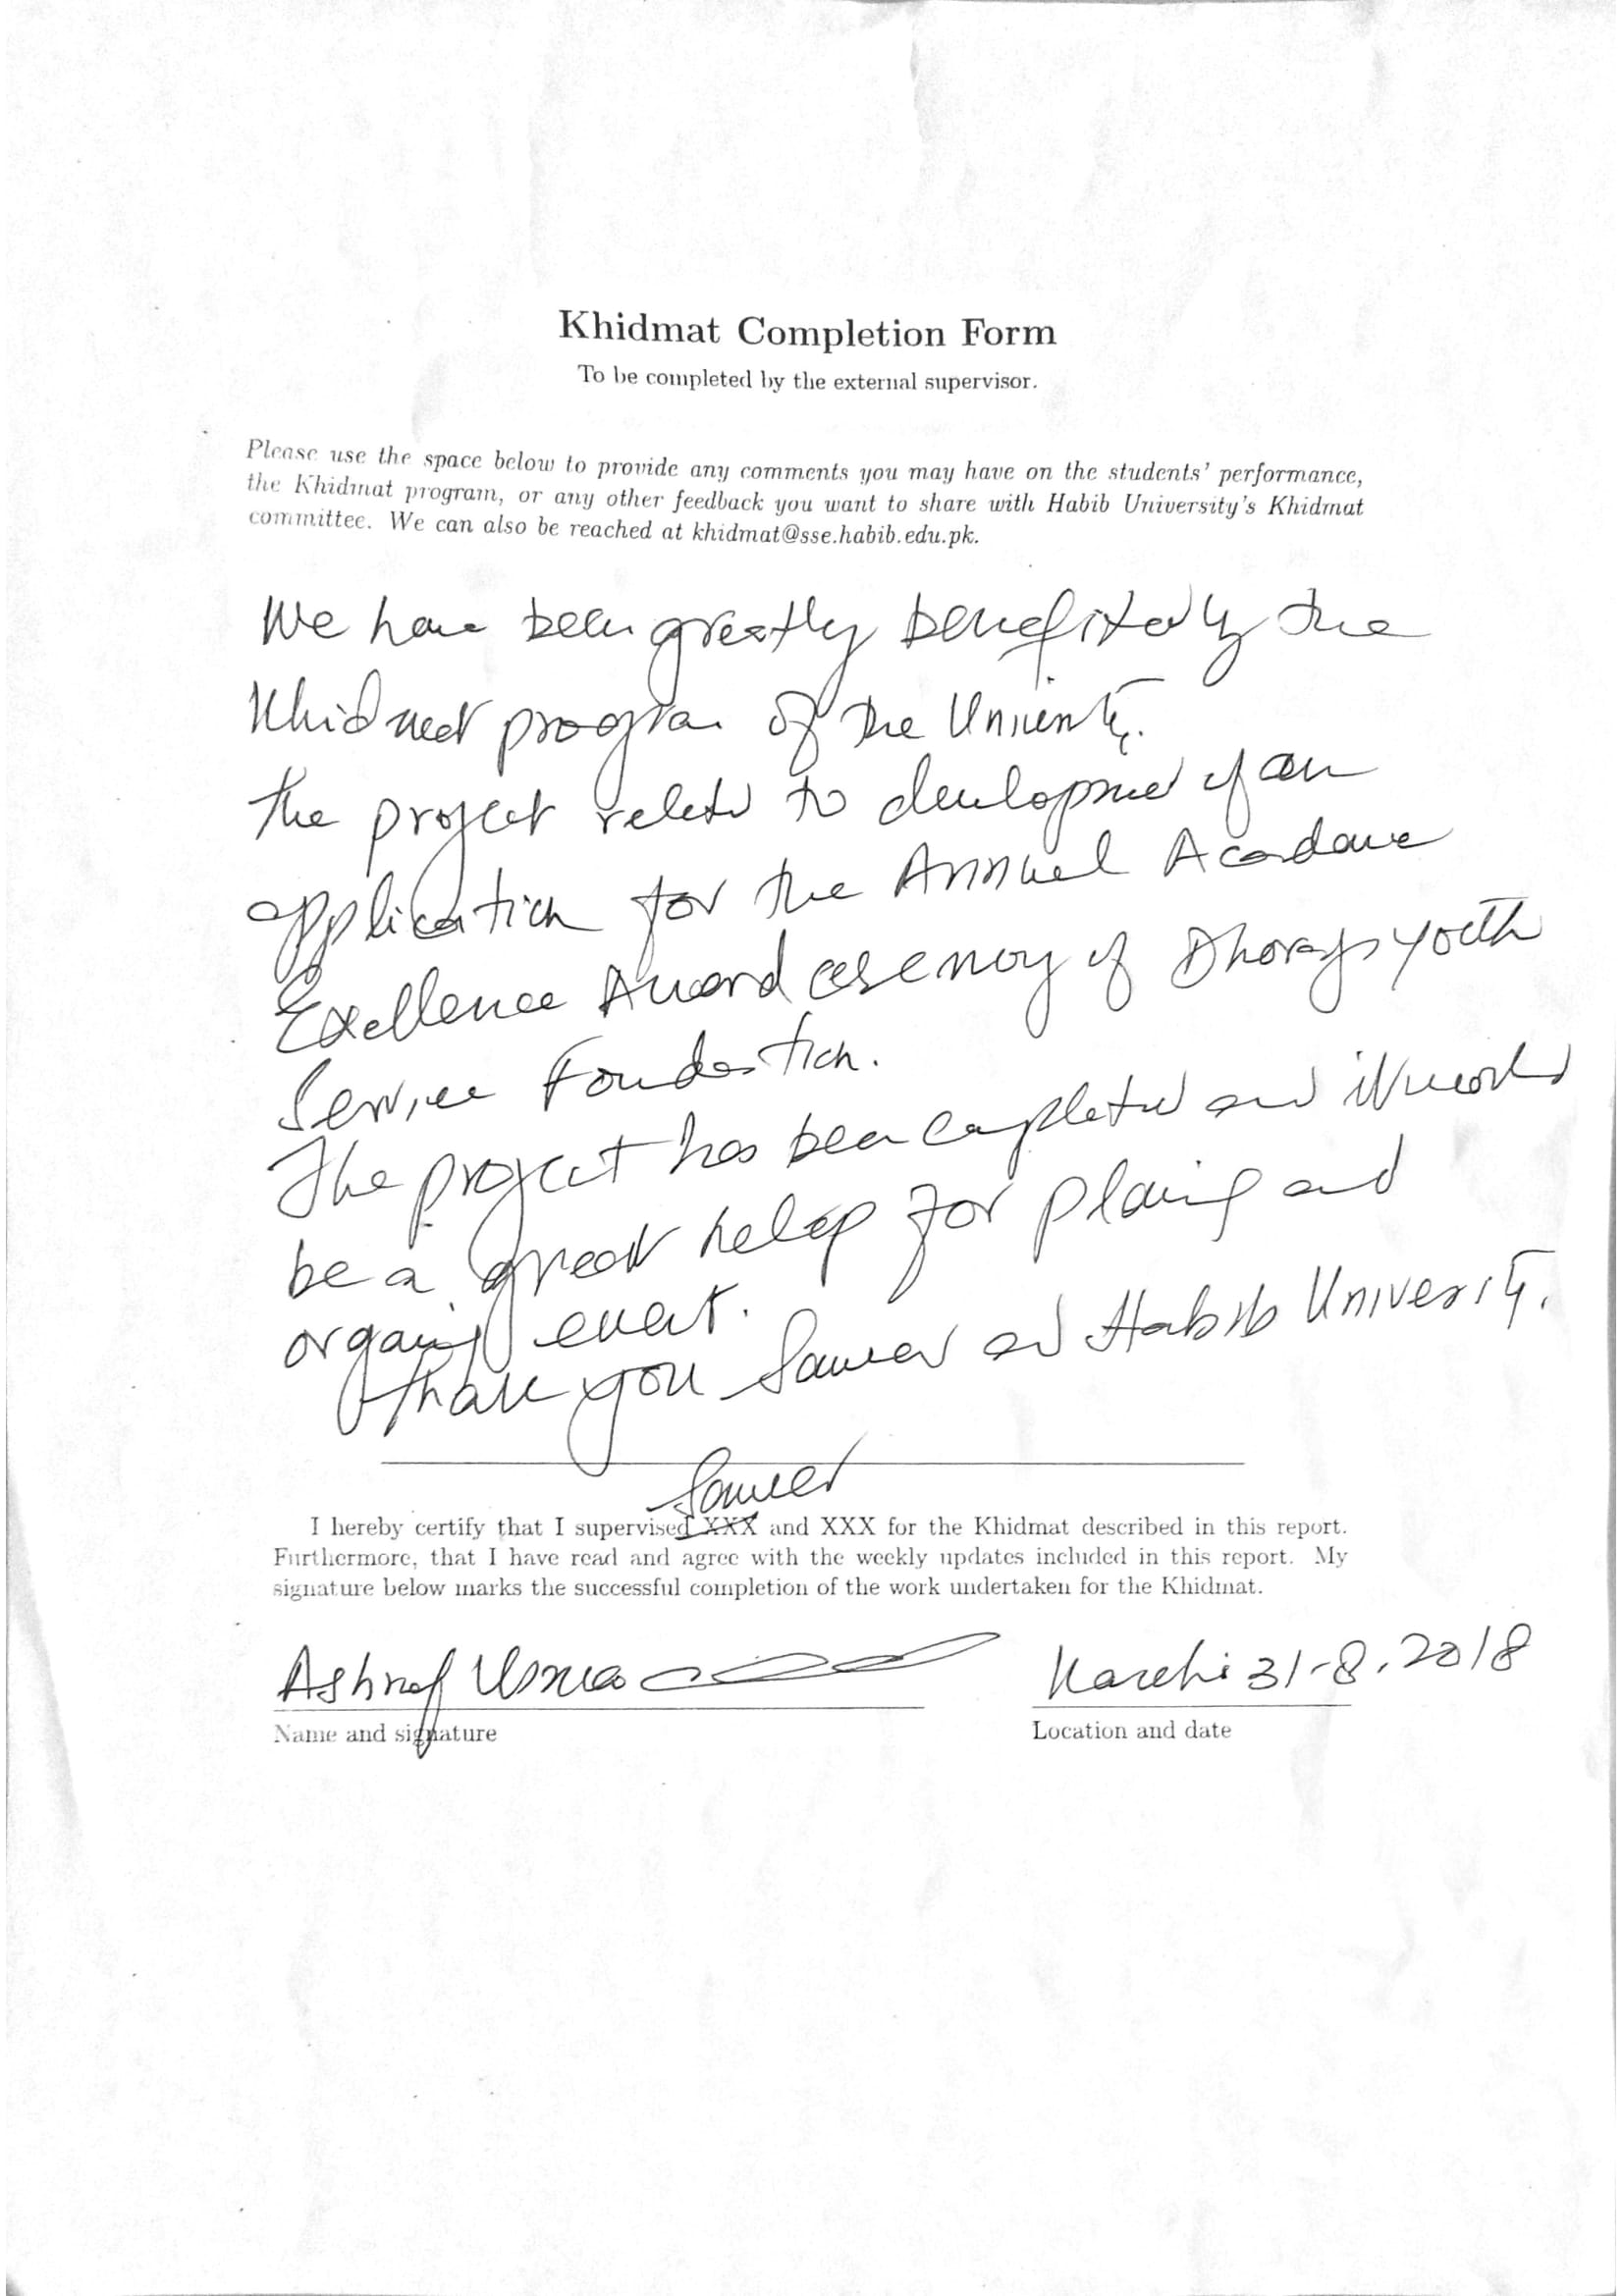 Khidmat Completion Form
To be completed by the external supervisor.
Please use the space below to provide any comments you may have on the students' performance,
the Khidmat program, or any other feedback you want to share with Habib University's Khidmat
committee. We can also be reached at khidmat@sse.habib.edu.pk.
We have been greatly benefited by the
Khidmat program of the University.
The project related to development of an
application for the Annual Academic
Excellence Award ceremony of Dhoraji Youth
Service Foundation.
The project has been completed and it would
be a great help for planing and
organing event.
Thank you Sameer and Habib University.
Sameer
I hereby certify that I supervised XXX and XXX for the Khidmat described in this report.
Furthermore, that I have read and agree with the weekly updates included in this report. My
signature below marks the successful completion of the work undertaken for the Khidmat.
Ashraf Usman Karachi 31-8.2018
Name and signature Location and date